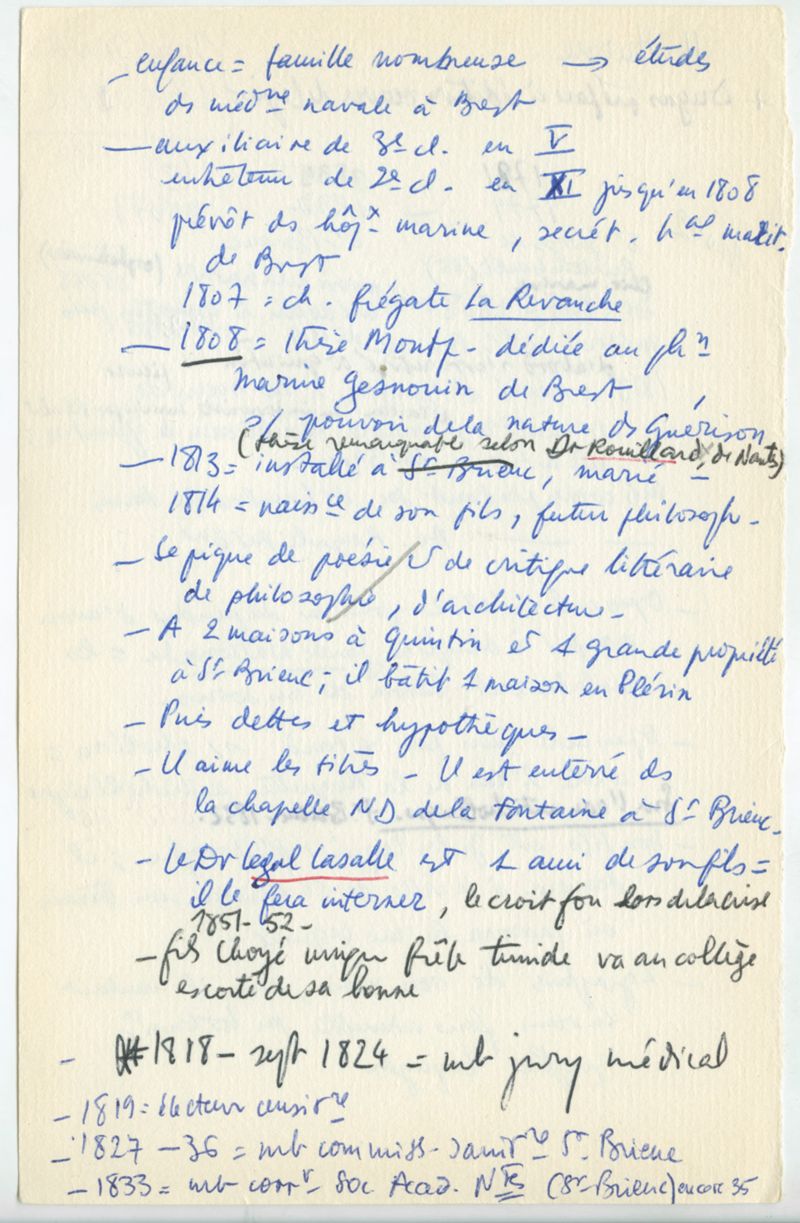 - enfance = famille nombreuse → études
ds méd^ne navale à Brest
— auxiliaire de 3e cl. en V
entretenu de 2e cl. en XI jusqu'en 1808
prévôt ds hôp^x marine, secrét.
de Brest
1807 = ch. frégate La Revanche
— 1808 = thèse Montp - dédiée au ph^n
marine Gesnouin de Brest,
s/ pouvoir de la nature ds Guérison
(thèse remarquable selon Dr Rouillard, de Nantes)
— 1813 = installé à St Brieuc, marié -
1814 = naiss^ce de son fils, futur philosoph -
- Se pique de poésie & de critique littéraire
de philosophie, d'architecture -
- A 2 maisons à Quintin et 1 grande propriété
à St Brieuc ; il bâtit 1 maison en Plérin
- Puis dettes et hypothèques -
- Il aime les titres - Il est enterré ds
la chapelle ND de la Fontaine à St Brieuc.
- le Dr Legal Lasalle est 1 ami de son fils =
il le fera interner, le croit fou lors de la crise
1851-52 -
- fils choyé unique frêle timide va au collège
escorté de sa bonne
- 1818 - sept 1824 = mb jury médical
- 1819 = électeur censit^re
- 1827 - 36 = mb commiss. sanit^re St Brieuc
- 1833 = mb corr^r - Soc Acad. N^tes (St-Brieuc) encore 35